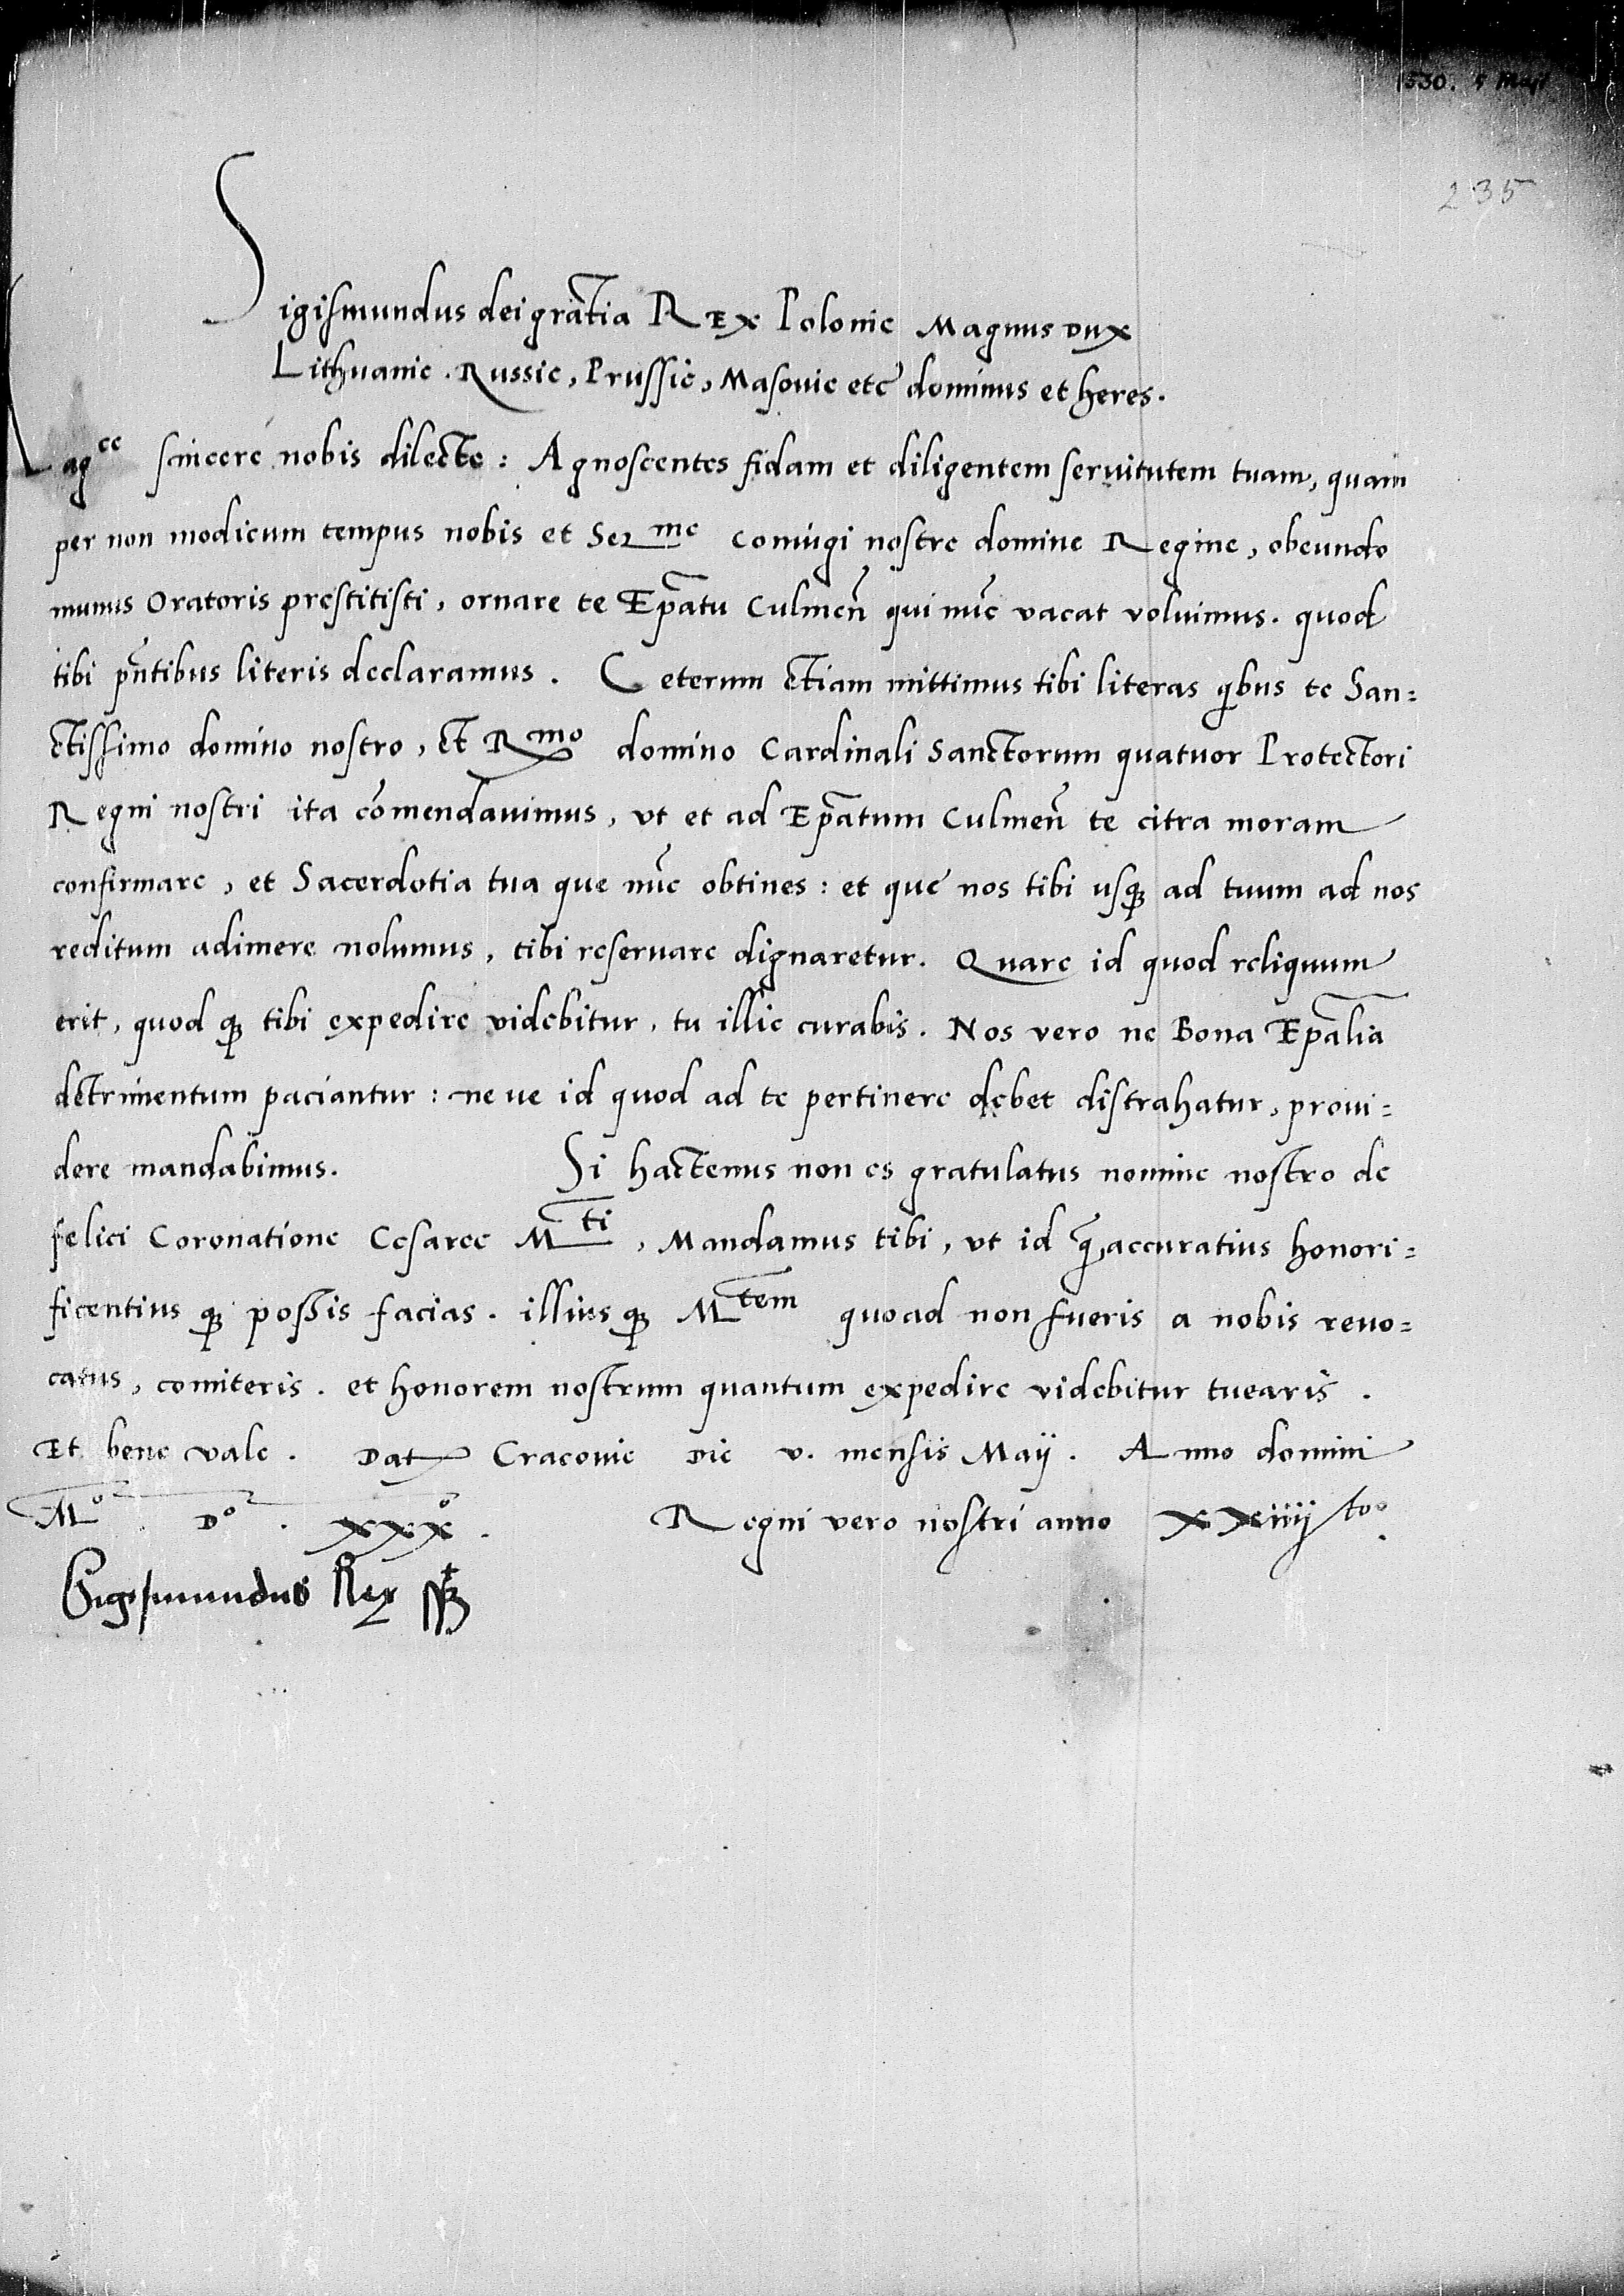 1530. 5 Maji
235
Sigismundus dei gratia REx Polonie Magnus Dux
Lithuanie. Russie, Prussie, Masouie etc dominus et heres.
Magce sincere nobis dilecte: Agnoscentes fidam et diligentem seruitutem tuam, quam
per non modicum tempus nobis et Sermc coniugi nostre domine Regine, obeundo
munus Oratoris prestitisti, ornare te Epatu Culmen̄ qui nūc vacat voluimus. quod
tibi pn̄tibus literis declaramus. Ceterum etiam mittimus tibi literas qbus te San=
ctissimo domino nostro, et Rmo domino Cardinali Sanctorum quatuor Protectori
Regni nostri ita cōmendauimus, vt et ad Epatum Culmen̄ te citra moram
confirmare, et Sacerdotia tua que nūc obtines: et que nos tibi usq; ad tuum ad nos
reditum adimere nolumus, tibi reseruare dignaretur. Quare id quod reliquum
erit, quod q; tibi expedire videbitur, tu illic curabis. Nos vero ne Bona Epalia
detrimentum paciantur: ne ue id quod ad te pertinere debet distrahatur, proui=
dere mandabimus. Si hactenus non es gratulatus nomine nostro de
felici Coronatione Cesaree Mti, Mandamus tibi, vt id q̄ accuratius honori=
ficentius q; possis facias. illius q; Mtem quoad non fueris a nobis reuo=
catus, comiteris. et honorem nostrum quantum expedire videbitur tuearis.
Et bene vale. Dat Cracouie Die v. mensis Maij. Anno domini
Mo Do. xxxo. Regni vero nostri anno XXiiij to.
Sigismundus Rex